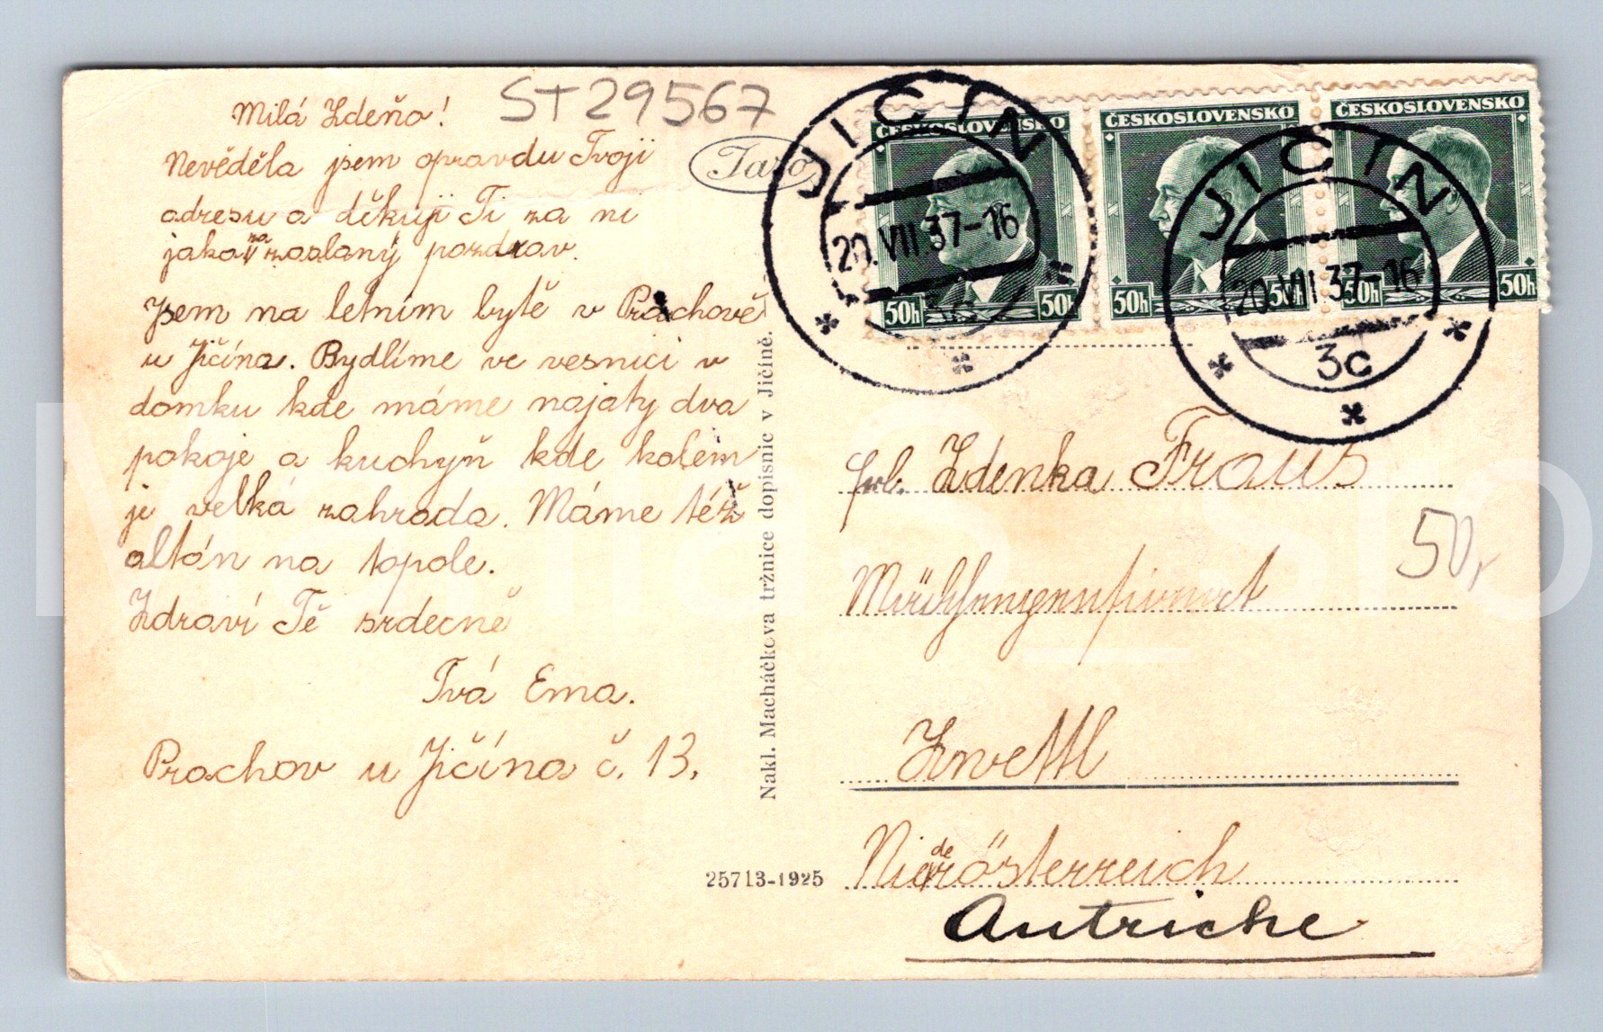 Milá Zdeňo!
Nevěděla jsem opravdu Tvoji
adresu a děkuji Ti za ni
jakož za zaslaný pozdrav.
Jsem na letním bytě v Prachově
u Jičína. Bydlíme ve vesnici v
domku kde máme najaty dva
pokoje a kuchyň kde kolem
je velká zahrada. Máme též
altán na topole.
Zdraví Tě srdecně
Tvá Ema.
Prachov u Jičína č. 13.
ST29567
Taro
Nakl. Macháčkova tržnice dopisnic v Jičíně.
25713-1925
ČESKOSLOVENSKO
50h 50h
ČESKOSLOVENSKO
50h 50h
ČESKOSLOVENSKO
50h 50h
JIČÍN
20.VII 37-16
3c
JIČÍN
20.VII 37-16
3c
Zdenka Fraus
50,
Zwettl
Niederösterreich
Autriche